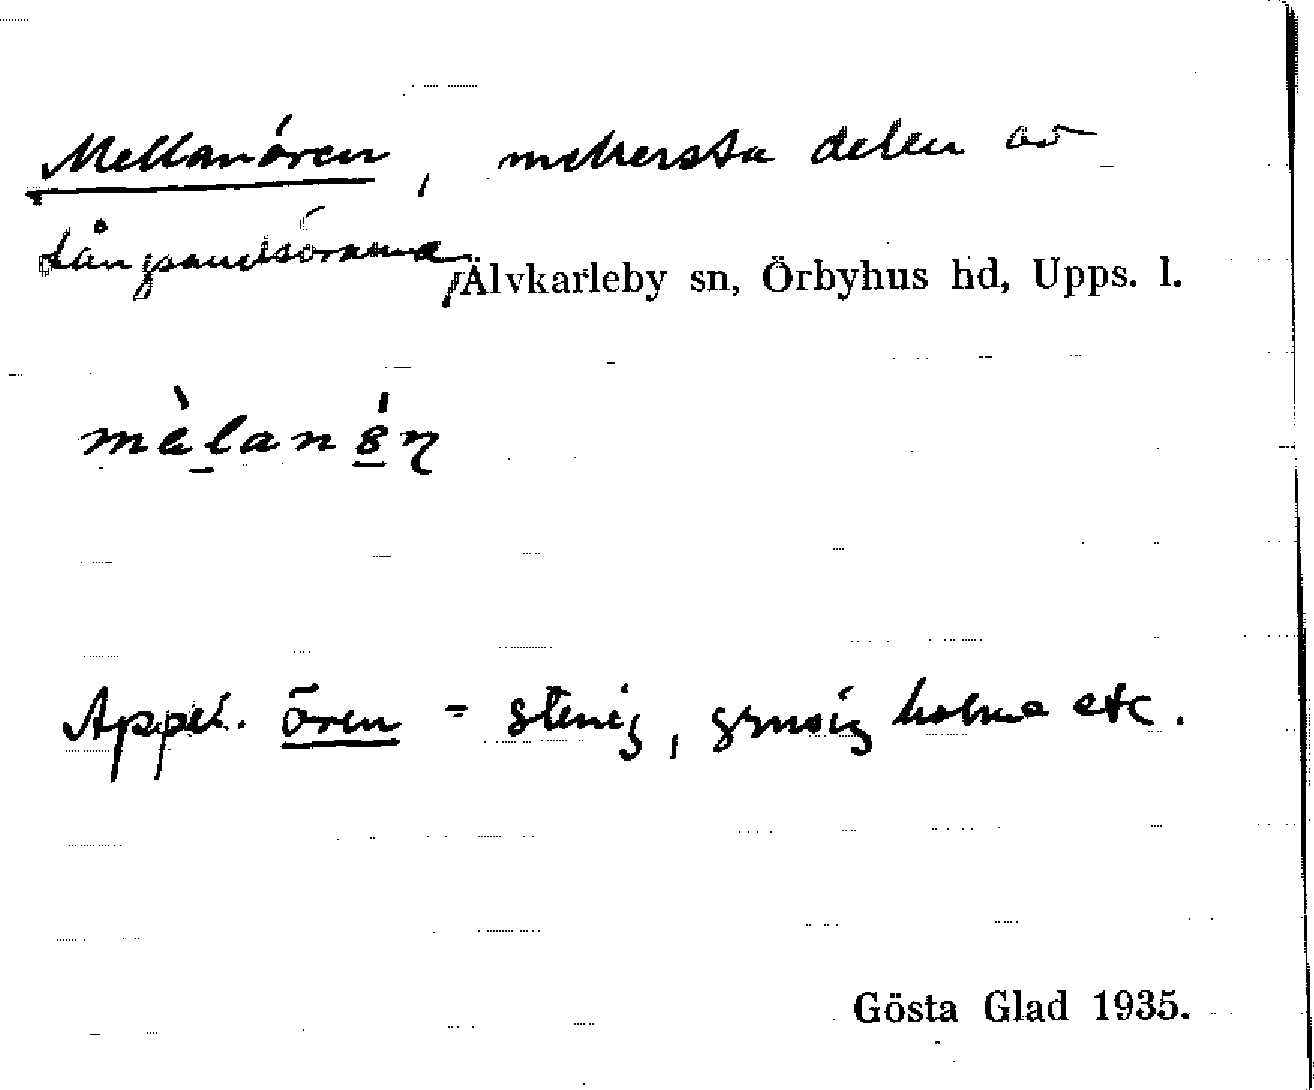 Mellanören, mellersta delen av
Långsandsörarna, Älvkarleby sn, Örbyhus hd, Upps. l.
mèlanǿn
Appel. ören = stenig, grusig holme etc.
Gösta Glad 1935.